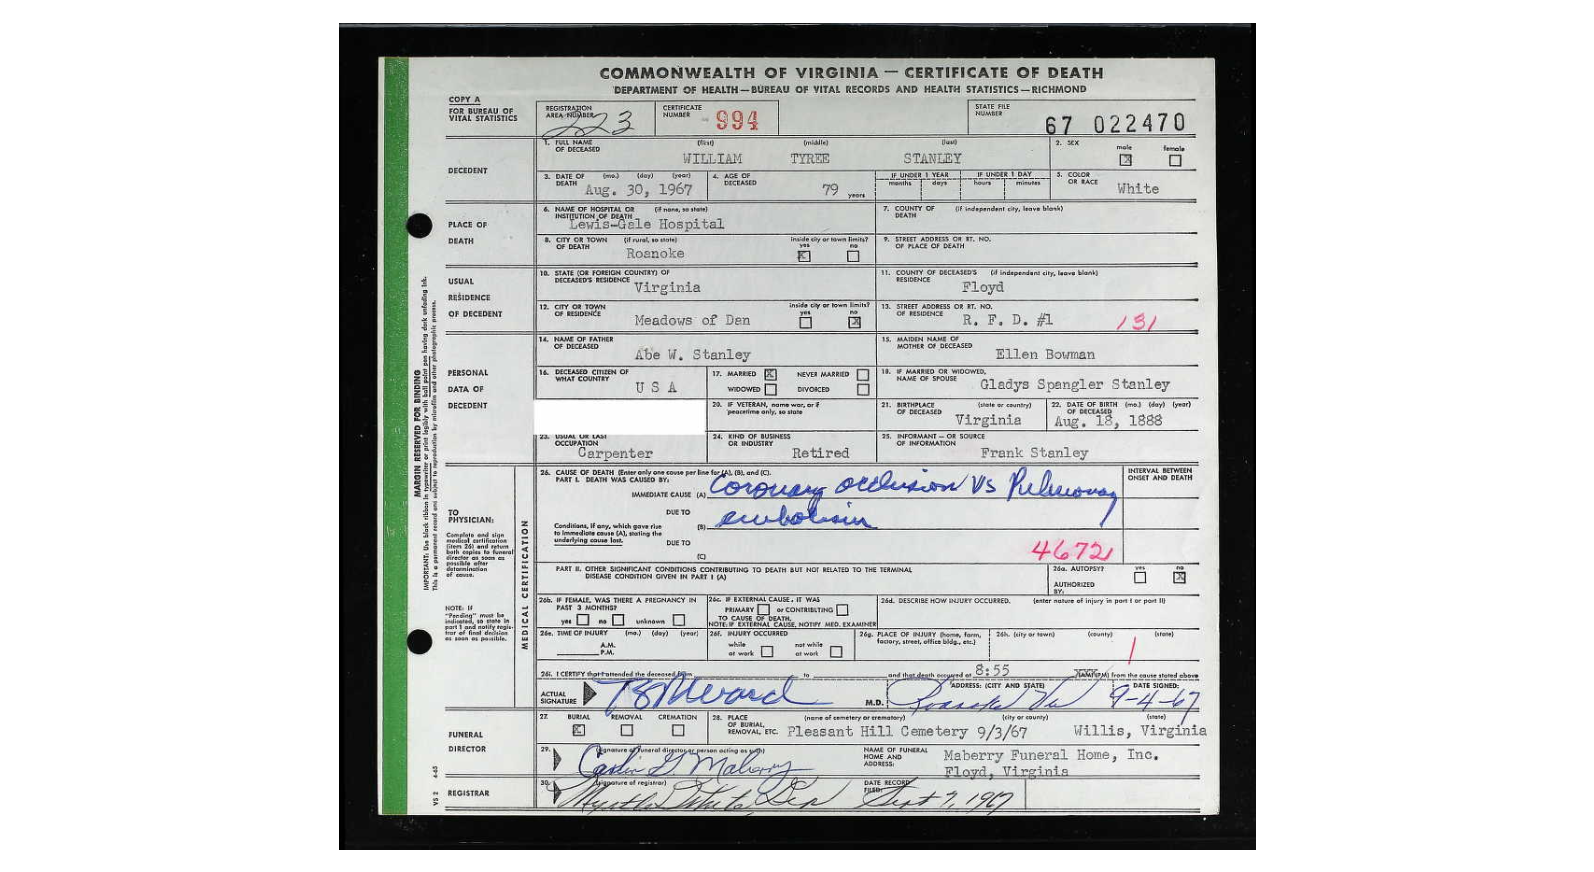 COMMONWEALTH OF VIRGINIA — CERTIFICATE OF DEATH
DEPARTMENT OF HEALTH—BUREAU OF VITAL RECORDS AND HEALTH STATISTICS—RICHMOND
COPY A
FOR BUREAU OF VITAL STATISTICS
REGISTRATION AREA NUMBER 223
CERTIFICATE NUMBER 994
STATE FILE NUMBER 67 022470
DECEDENT
1. FULL NAME OF DECEASED (first) (middle) (last)
WILLIAM TYREE STANLEY
2. SEX male X female
3. DATE OF DEATH (mo.) (day) (year) Aug. 30, 1967
4. AGE OF DECEASED 79 years
IF UNDER 1 YEAR months days
IF UNDER 1 DAY hours minutes
5. COLOR OR RACE White
PLACE OF DEATH
6. NAME OF HOSPITAL OR INSTITUTION OF DEATH (if none, so state)
Lewis-Gale Hospital
7. COUNTY OF DEATH (if independent city, leave blank)
8. CITY OR TOWN OF DEATH (if rural, so state) Roanoke
inside city or town limits? yes X no
9. STREET ADDRESS OR RT. NO. OF PLACE OF DEATH
USUAL RESIDENCE OF DECEDENT
10. STATE (OR FOREIGN COUNTRY) OF DECEASED'S RESIDENCE Virginia
11. COUNTY OF DECEASED'S RESIDENCE (if independent city, leave blank) Floyd
12. CITY OR TOWN OF RESIDENCE Meadows of Dan
inside city or town limits? yes no X
13. STREET ADDRESS OR RT. NO. OF RESIDENCE R. F. D. #1
131
PERSONAL DATA OF DECEDENT
14. NAME OF FATHER OF DECEASED Abe W. Stanley
15. MAIDEN NAME OF MOTHER OF DECEASED Ellen Bowman
16. DECEASED CITIZEN OF WHAT COUNTRY U S A
17. MARRIED X NEVER MARRIED
WIDOWED DIVORCED
18. IF MARRIED OR WIDOWED, NAME OF SPOUSE Gladys Spangler Stanley
20. IF VETERAN, name war, or if peacetime only, so state
21. BIRTHPLACE OF DECEASED (state or country) Virginia
22. DATE OF BIRTH OF DECEASED (mo.) (day) (year) Aug. 18, 1888
23. USUAL OR LAST OCCUPATION Carpenter
24. KIND OF BUSINESS OR INDUSTRY Retired
25. INFORMANT — OR SOURCE OF INFORMATION Frank Stanley
MARGIN RESERVED FOR BINDING
IMPORTANT: Use black ribbon in typewriter or print legibly with ball point pen having dark unfading ink.
This is a permanent record and subject to reproduction by microfilm and other photographic process.
TO PHYSICIAN:
Complete and sign medical certification (item 26) and return both copies to funeral director as soon as possible after determination of cause.
NOTE: If "Pending" must be indicated, so state in part 1 and notify registrar of final decision as soon as possible.
MEDICAL CERTIFICATION
26. CAUSE OF DEATH (Enter only one cause per line for (A), (B), and (C).
PART I. DEATH WAS CAUSED BY:
INTERVAL BETWEEN ONSET AND DEATH
IMMEDIATE CAUSE (A) Coronary occlusion vs Pulmonary
DUE TO
Conditions, if any, which gave rise to immediate cause (A), stating the underlying cause last.
(B) embolism
DUE TO
(C)
46721
PART II. OTHER SIGNIFICANT CONDITIONS CONTRIBUTING TO DEATH BUT NOT RELATED TO THE TERMINAL DISEASE CONDITION GIVEN IN PART I (A)
26a. AUTOPSY? yes no X
AUTHORIZED BY:
26b. IF FEMALE, WAS THERE A PREGNANCY IN PAST 3 MONTHS?
yes no unknown
26c. IF EXTERNAL CAUSE, IT WAS
PRIMARY or CONTRIBUTING
TO CAUSE OF DEATH.
NOTE: IF EXTERNAL CAUSE, NOTIFY MED. EXAMINER
26d. DESCRIBE HOW INJURY OCCURRED. (enter nature of injury in part I or part II)
26e. TIME OF INJURY (mo.) (day) (year)
A.M.
P.M.
26f. INJURY OCCURRED
while at work not while at work
26g. PLACE OF INJURY (home, farm, factory, street, office bldg., etc.)
26h. (city or town) (county) (state)
1
26i. I CERTIFY that I attended the deceased from to and that death occurred at 8:55 (AM)(PM) from the cause stated above
ACTUAL SIGNATURE M.D.
ADDRESS: (CITY AND STATE) Roanoke Va
DATE SIGNED: 9-4-67
FUNERAL DIRECTOR
27. BURIAL X REMOVAL CREMATION
28. PLACE OF BURIAL, REMOVAL, ETC. (name of cemetery or crematory) (city or county) (state)
Pleasant Hill Cemetery 9/3/67 Willis, Virginia
29. (signature of funeral director or person acting as such)
NAME OF FUNERAL HOME AND ADDRESS: Maberry Funeral Home, Inc.
Floyd, Virginia
REGISTRAR
30. (signature of registrar)
DATE RECORD FILED: Sept 7, 1967
VS 2 4-65